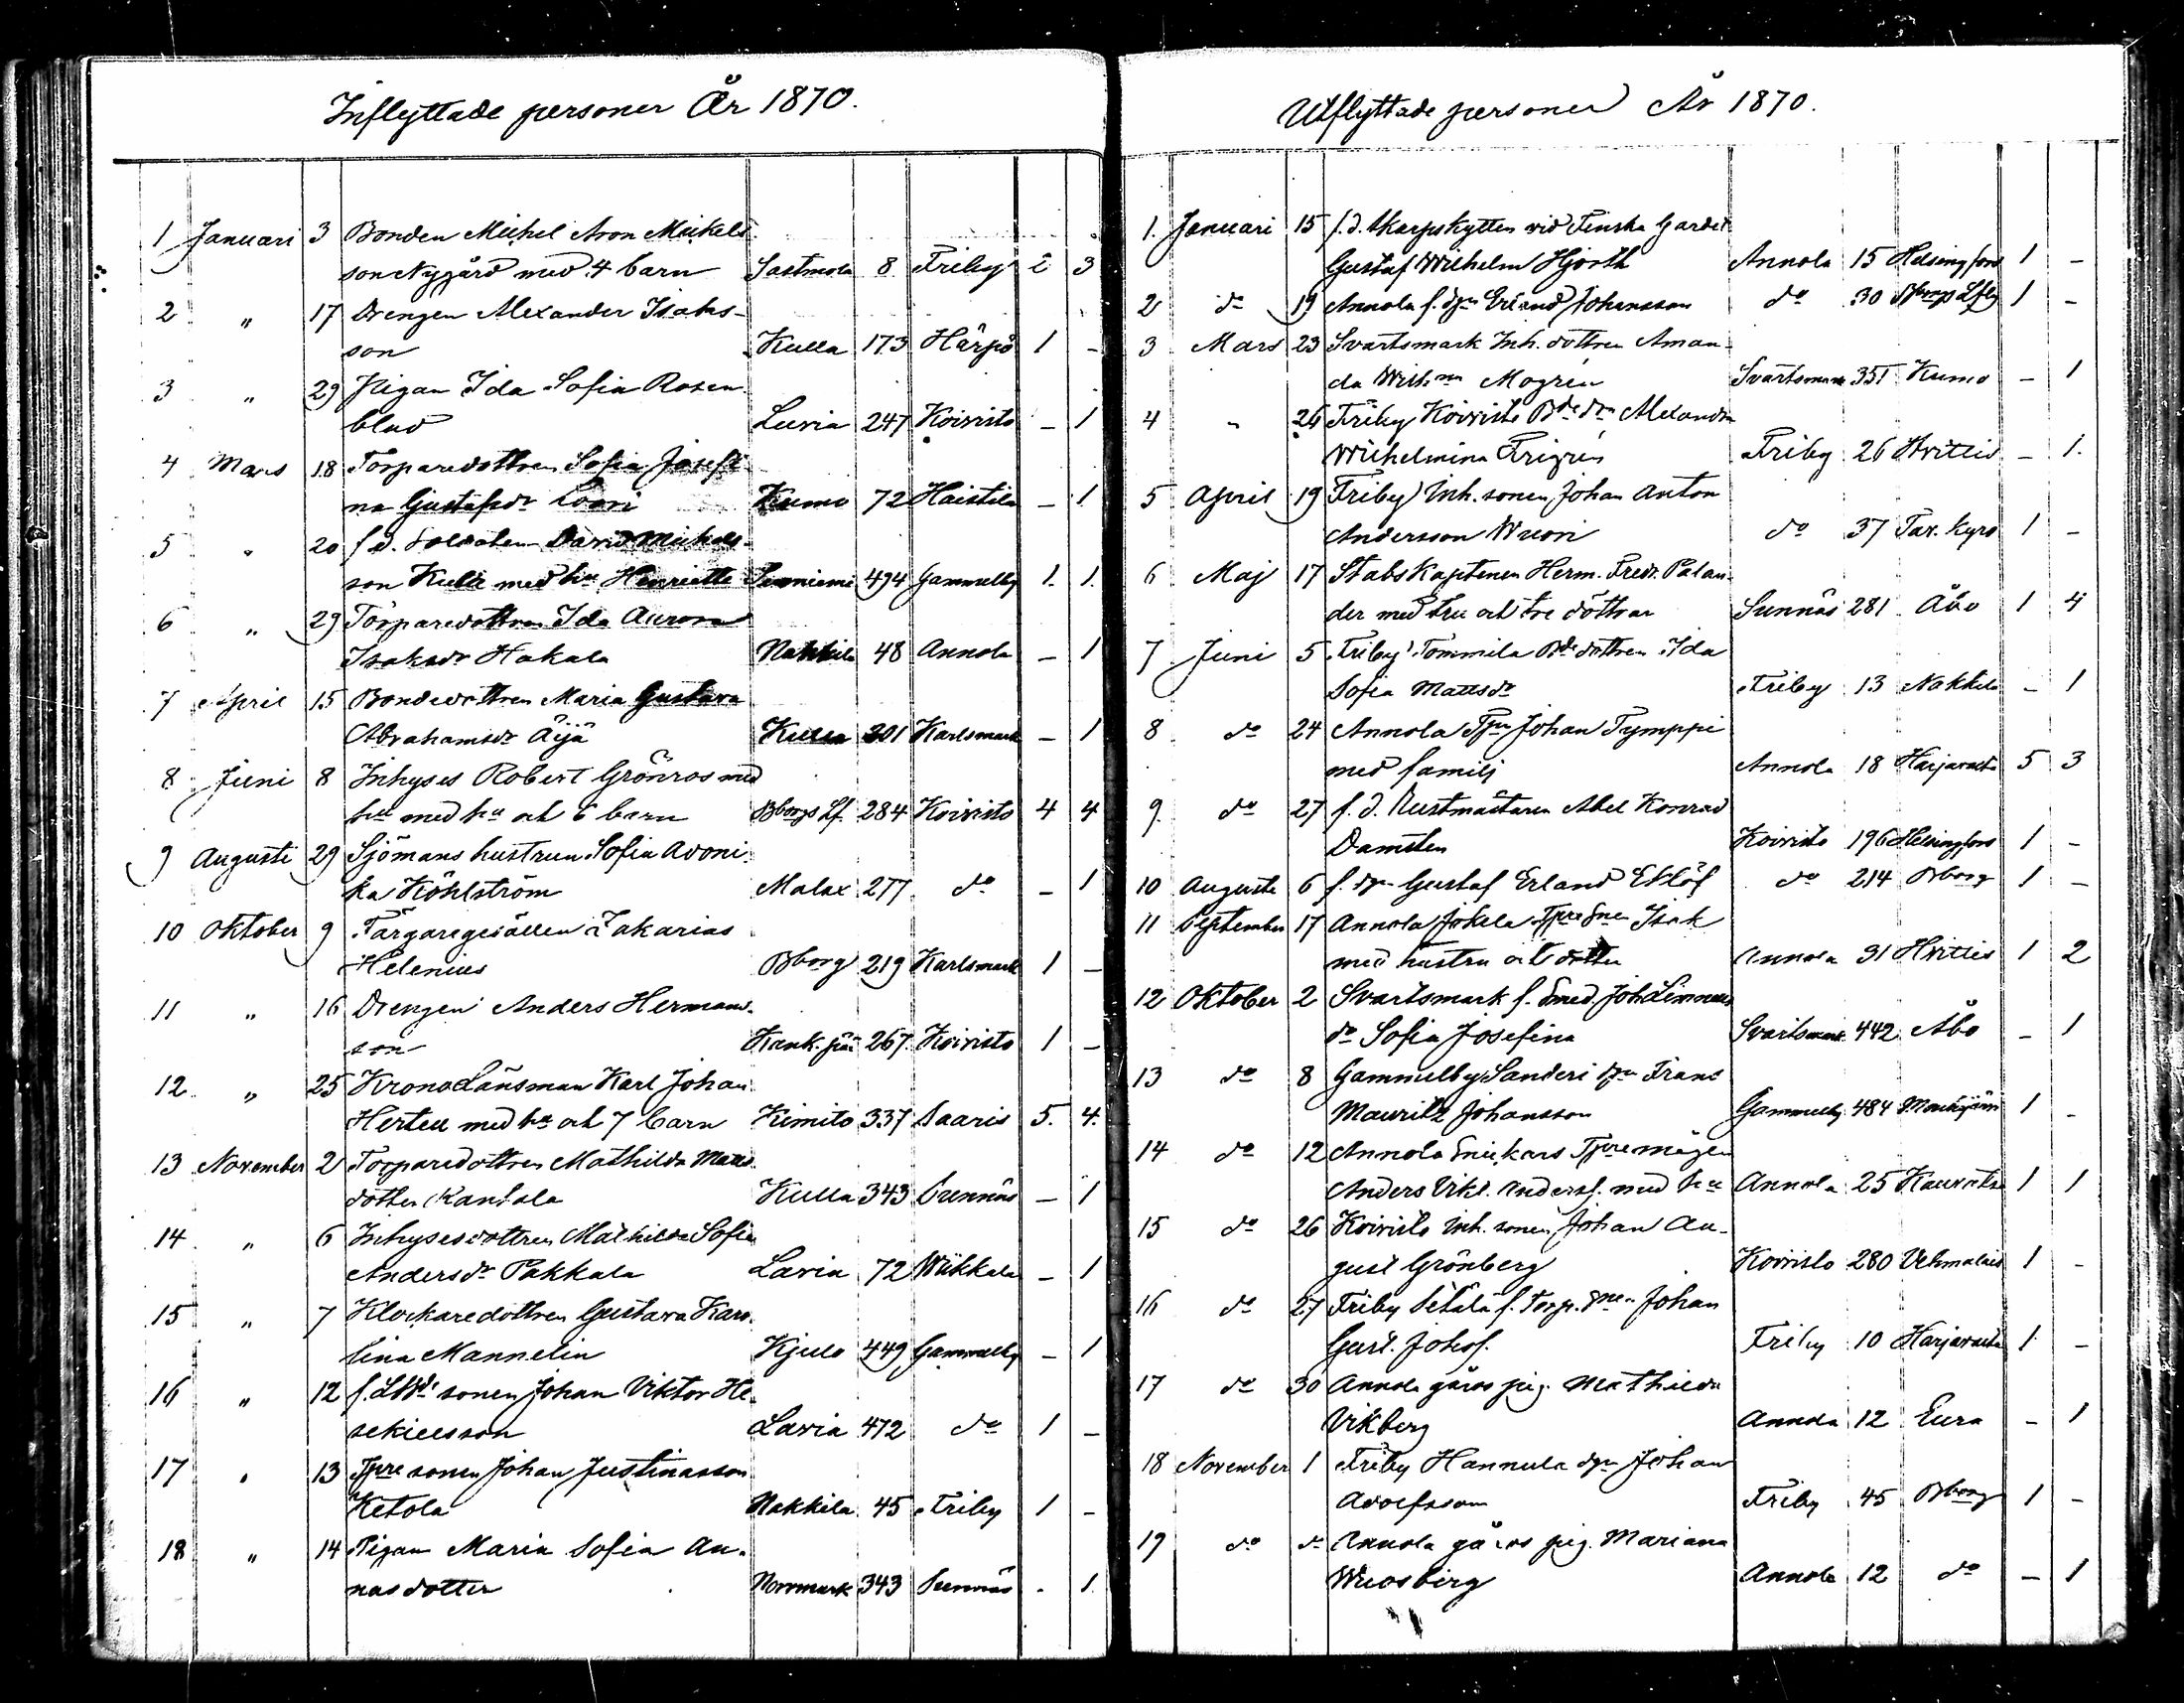 Inflyttade personer År 1870.
1 Januari 3 Bonden Michel Aron Mickels-
son Nygård med 4 barn Sastmola 8 Friby 2 3
2 " 17 Drengen Alexander Isaks-
son Kulla 173 Härpö 1 -
3 " 29 Pigan Ida Sofia Rosen
blad Luvia 247 Koivisto - 1
4 Mars 18 Torparedottren Sofia Josefi
na Gustafsdr Kumo 72 Haistila - 1
5 " 20 f.d. Soldaten David Mickels-
son Kulla med hu Henriette 494 Gammelby 1. 1.
6 " 29 Torparedottren Ida Aurora
Isaksdr Hakala Nakkila 48 Annola - 1
7 April 15 Bondedottren Maria Gustava
Abrahamsdr Äijä Kulla 201 Karlsmark - 1
8 Juni 8 Inhyses Robert Grönros med
hu med hu och 6 barn Bborgs Lf. 284 Koivisto 4 4
9 Augusti 29 Sjömans hustrun Sofia Adoni
ka Köhlström Malax 277 do - 1
10 Oktober 9 Färgaregesällen Zakarias
Helenius Bborg 219 Karlsmark 1 -
11 " 16 Drengen Anders Hermans-
son Kank.pää 267 Koivisto 1 -
12 " 25 Kronolänsman Karl Johan
Hertell med hu och 7 barn Kimito 337 Saaris 5. 4.
13 November 2 Torparedottren Mathilda Matts
dotter Kantola Kulla 343 Sunnäs - 1
14 " 6 Inhysesdottren Mathilda Sofia
Andersdr Pakkala Lavia 72 Wiikkala - 1
15 " 7 Klockaredottren Gustava Karo-
lina Mannelin Kjulo 449 Gammelby - 1
16 " 12 f. sonen Johan Viktor He-
sekielsson Lavia 472 do 1 -
17 " 13 Tpre sonen Johan Justinasson
Ketola Nakkila 45 Friby 1 -
18 " 14 Pigan Maria Sofia An-
nasdotter Norrmark 343 Sunnäs - 1
Utflyttade personer År 1870.
1. Januari 15 f.d. Skarpskytten vid Finska Gardet
Gustaf Wilhelm Hjorth Annola 15 Helsingfors 1 -
2 do 19 Annola f. dgn Erland Johansson do 30 Bborgs Lfg 1 -
3 Mars 23 Svartsmark Inh. dottren Aman-
da Wilhna Mogrén Svartsmark 351 Kumo - 1
4 " 26 Friby Koivisto Bde dn Alexandra
Wilhelmina Frigrén Friby 26 Hvittis - 1.
5 April 19 Friby Inh. sonen Johan Anton
Andersson Wuori do 37 Tav. kyro 1 -
6 Maj 17 Stabskaptenen Herm. Fredr. Palan-
der med fru och tre döttrar Sunnäs 281 Åbo 1 4
7 Juni 5 Friby Tommila Bde dottren Ida
Sofia Mattsdr Friby 13 Nakkila - 1
8 do 24 Annola Tprn Johan Tymppi
med familj Annola 18 Harjavalta 5 3
9 do 27 f.d. Rustmästaren Abel Konrad
Damsten Koivisto 196 Helsingfors 1 -
10 Augusti 6 f. dgn Gustaf Erland Eklöf do 214 Bborg 1 -
11 September 17 Annola Jokela Tpre Sne Isak
med hustru och dotter Annola 31 Hvittis 1 2
12 Oktober 2 Svartsmark f. Smed. Joh
dr Sofia Josefina Svartsmark 442 Åbo - 1
13 do 8 Gammelby Sanderi dgn Frans
Mauritz Johansson Gammelby 484 Mouhijärvi 1 -
14 do 12 Annola Snickars Tpremågen
Anders Vikt. Andersf. med hu Annola 25 Kauvatsa 1 1
15 do 26 Koivisto Inh. sonen Johan Au-
gust Grönberg Koivisto 280 Vehmalais 1 -
16 do 27 Friby Setälä f. Torp. sne Johan
Gust. Johsf. Friby 10 Harjavalta 1 -
17 do 30 Annola gårds pig. Mathilda
Vikberg Annola 12 Eura - 1
18 November 1 Friby Hannula dgn Johan
Adolfsson Friby 45 Bborg 1 -
19 do do Annola gårds pig. Mariana
Wuosberg Annola 12 do - 1